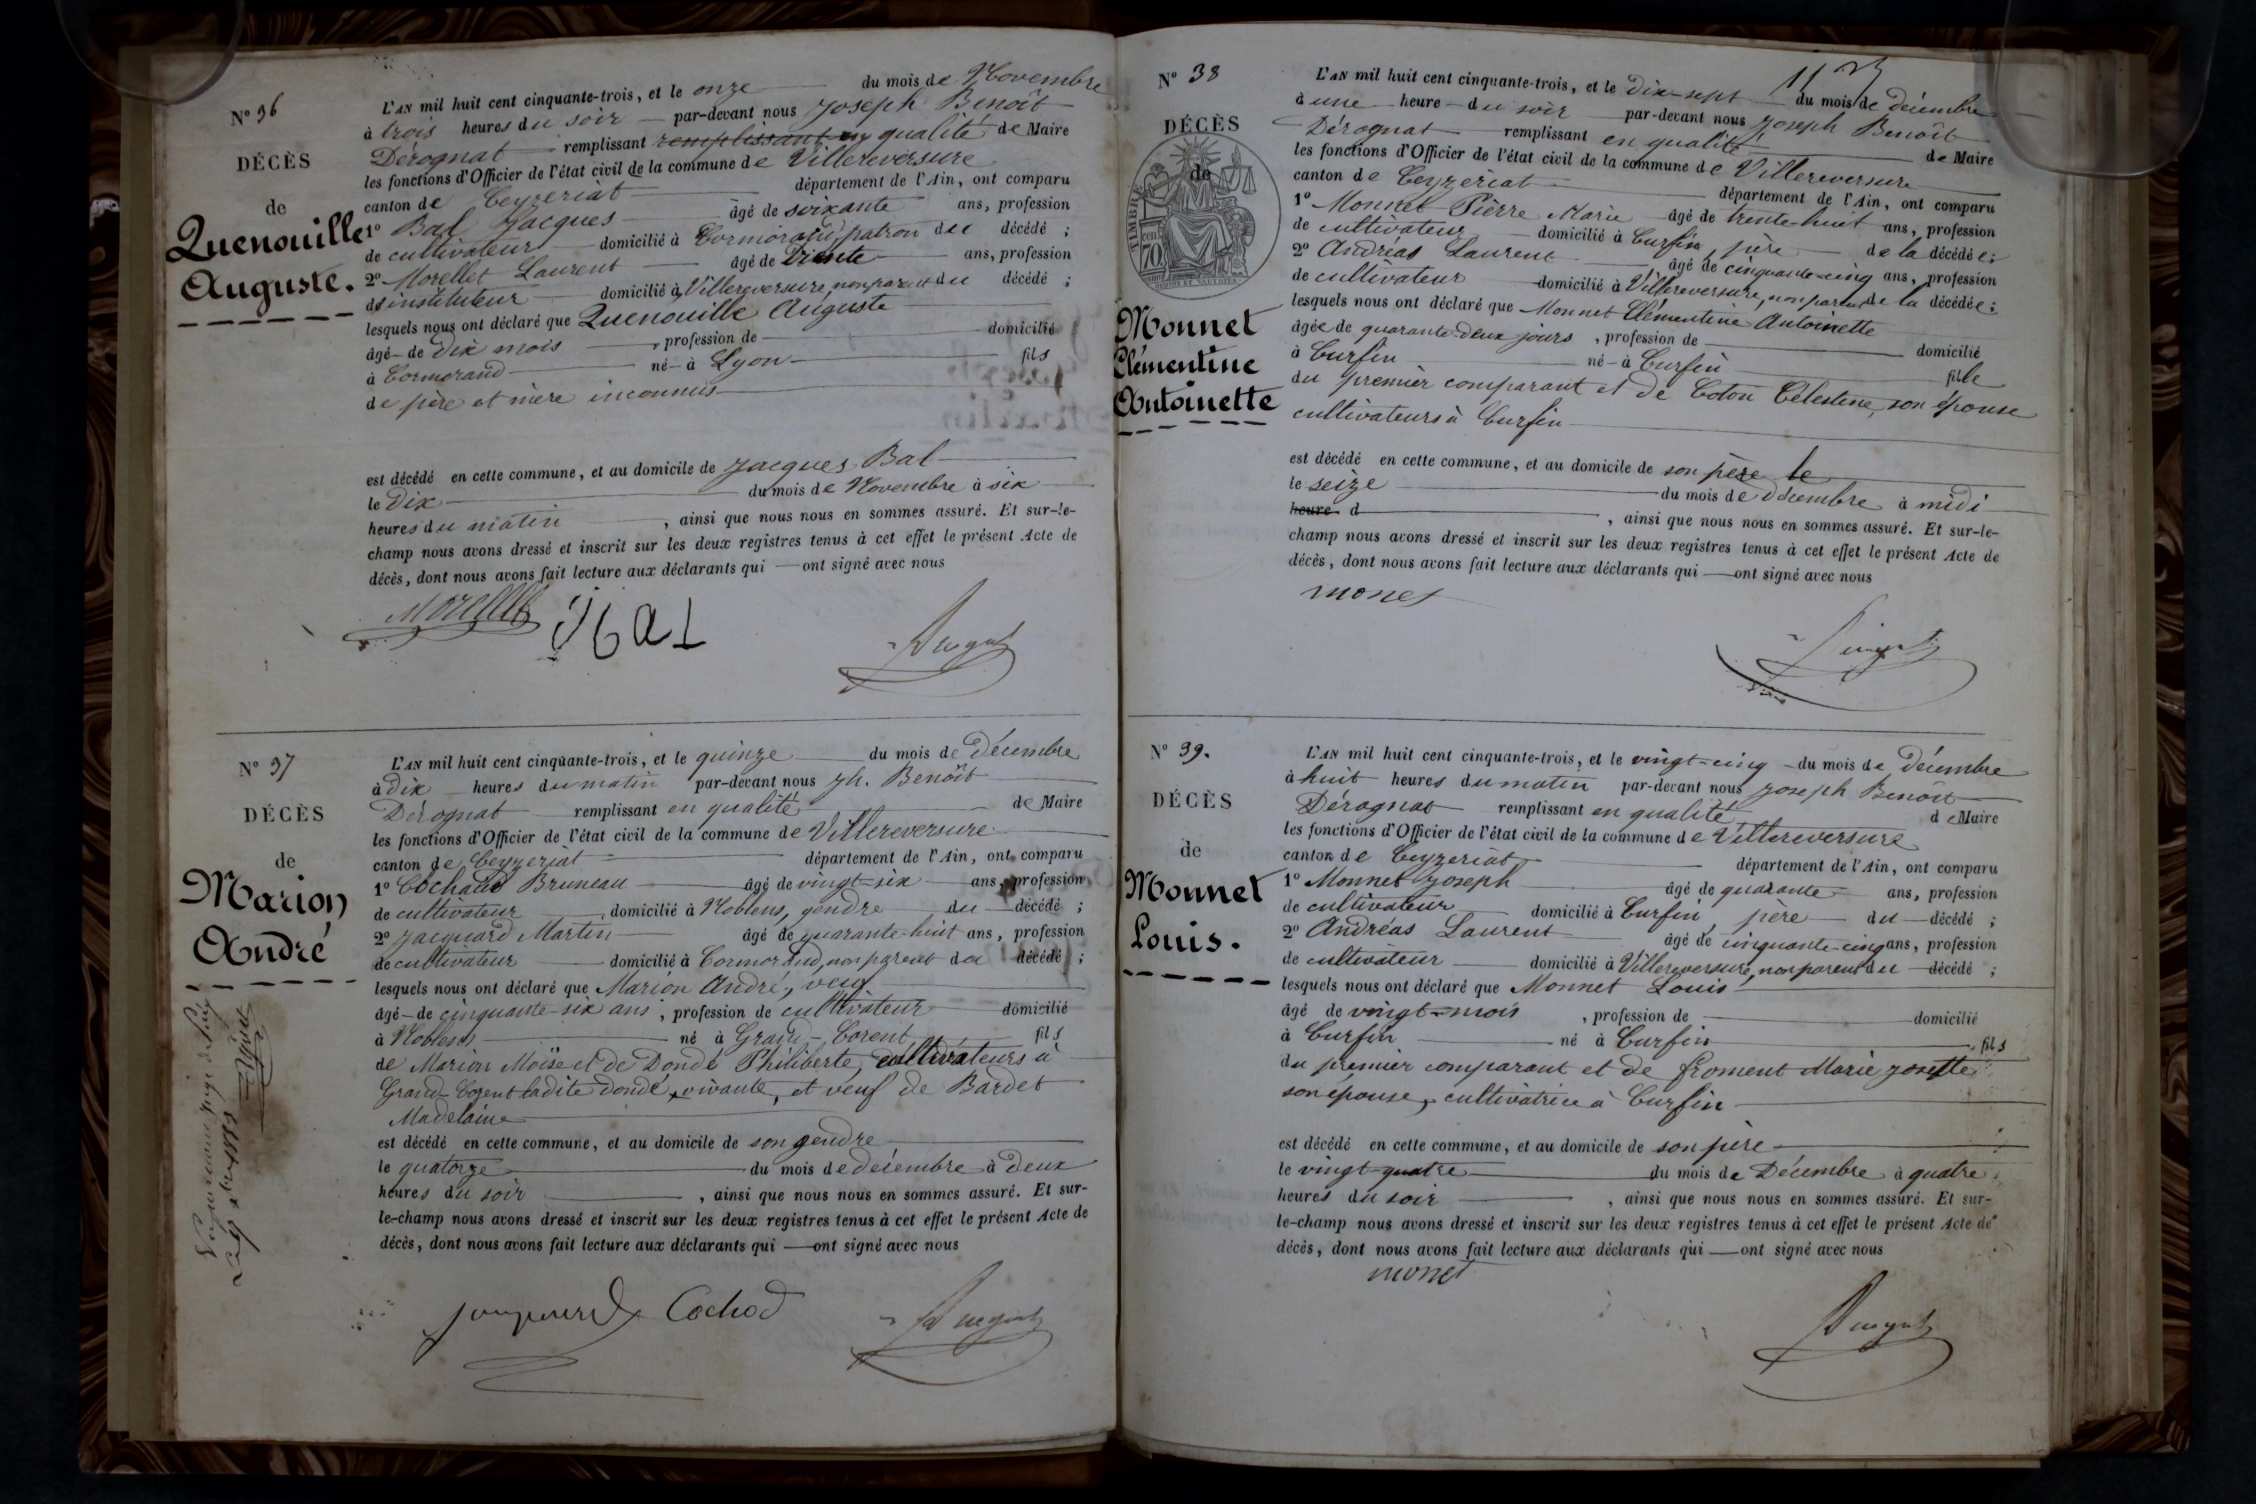 N° 36
DÉCÈS
de
Quenouille
Auguste.
L'AN mil huit cent cinquante-trois, et le onze du mois de Novembre
à trois heures du soir par-devant nous Joseph Benoît
Dérognat remplissant remplissant en qualité de Maire
les fonctions d'Officier de l'état civil de la commune de Villereversure
canton de Ceyzeriat département de l'Ain, ont comparu
1° Bal Jacques âgé de soixante ans, profession
de cultivateur domicilié à Cormorand, patron du décédé ;
2° Morellet Laurent âgé de trente ans, profession
d'instituteur domicilié à Villereversure, non parent du décédé ;
lesquels nous ont déclaré que Quenouille Auguste
âgé de dix mois , profession de domicilié
à Cormorand né à Lyon fils
de père et mère inconnus
est décédé en cette commune, et au domicile de Jacques Bal
le dix du mois de Novembre à six
heures du matin , ainsi que nous nous en sommes assuré. Et sur-le-
champ nous avons dressé et inscrit sur les deux registres tenus à cet effet le présent Acte de
décès, dont nous avons fait lecture aux déclarants qui ont signé avec nous
Morellet Bal
N° 37
DÉCÈS
de
Marion
André
L'AN mil huit cent cinquante-trois, et le quinze du mois de Décembre
à dix heures du matin par-devant nous Jh. Benoît
Dérognat remplissant en qualité de Maire
les fonctions d'Officier de l'état civil de la commune de Villereversure
canton de Ceyzeriat département de l'Ain, ont comparu
1° Cochaud Bruneau âgé de vingt-six ans, profession
de cultivateur domicilié à Noblens, gendre du décédé ;
2° Jacquard Martin âgé de quarante-huit ans, profession
de cultivateur domicilié à Cormorand, non parent du décédé ;
lesquels nous ont déclaré que Marion André, veuf
âgé de cinquante-six ans, profession de cultivateur domicilié
à Noblens né à Grand-Corent fils
de Marion Moïse et de Dondé Philiberte, cultivateurs à
Grand-Corent ladite Dondé, vivante, et veuf de Bardet
Madelaine
est décédé en cette commune, et au domicile de son gendre
le quatorze du mois de décembre à deux
heures du soir , ainsi que nous nous en sommes assuré. Et sur-
le-champ nous avons dressé et inscrit sur les deux registres tenus à cet effet le présent Acte de
décès, dont nous avons fait lecture aux déclarants qui ont signé avec nous
Cochod
N° 38
DÉCÈS
de
TIMBRE
70
Monnet
Clémentine
Antoinette
L'AN mil huit cent cinquante-trois, et le dix-sept du mois de décembre
à une heure du soir par-devant nous Joseph Benoît
Dérognat remplissant en qualité de Maire
les fonctions d'Officier de l'état civil de la commune de Villereversure
canton de Ceyzeriat département de l'Ain, ont comparu
1° Monnet Pierre Marie âgé de trente-huit ans, profession
de cultivateur domicilié à Curfin, père de la décédée ;
2° Andréas Laurent âgé de cinquante-cinq ans, profession
de cultivateur domicilié à Villereversure, non parent de la décédée ;
lesquels nous ont déclaré que Monnet Clémentine Antoinette
âgée de quarante-deux jours , profession de domicilié
à Curfin né à Curfin fille
du premier comparant et de Coton Célestine, son épouse
cultivateurs à Curfin
est décédé en cette commune, et au domicile de son père le
le seize du mois de décembre à midi
heure d , ainsi que nous nous en sommes assuré. Et sur-le-
champ nous avons dressé et inscrit sur les deux registres tenus à cet effet le présent Acte de
décès, dont nous avons fait lecture aux déclarants qui ont signé avec nous
monet
N° 39.
DÉCÈS
de
Monnet
Louis.
L'AN mil huit cent cinquante-trois, et le vingt-cinq du mois de Décembre
à huit heures du matin par-devant nous Joseph Benoît
Dérognat remplissant en qualité de Maire
les fonctions d'Officier de l'état civil de la commune de Villereversure
canton de Ceyzeriat département de l'Ain, ont comparu
1° Monnet Joseph âgé de quarante ans, profession
de cultivateur domicilié à Curfin, père du décédé ;
2° Andréas Laurent âgé de cinquante-cinq ans, profession
de cultivateur domicilié à Villereversure, non parent du décédé ;
lesquels nous ont déclaré que Monnet Louis
âgé de vingt-mois , profession de domicilié
à Curfin né à Curfin fils
du premier comparant et de Froment Marie Josette
son épouse, cultivatrice à Curfin
est décédé en cette commune, et au domicile de son père
le vingt-quatre du mois de Décembre à quatre
heures du soir , ainsi que nous nous en sommes assuré. Et sur-
le-champ nous avons dressé et inscrit sur les deux registres tenus à cet effet le présent Acte de
décès, dont nous avons fait lecture aux déclarants qui ont signé avec nous
monet